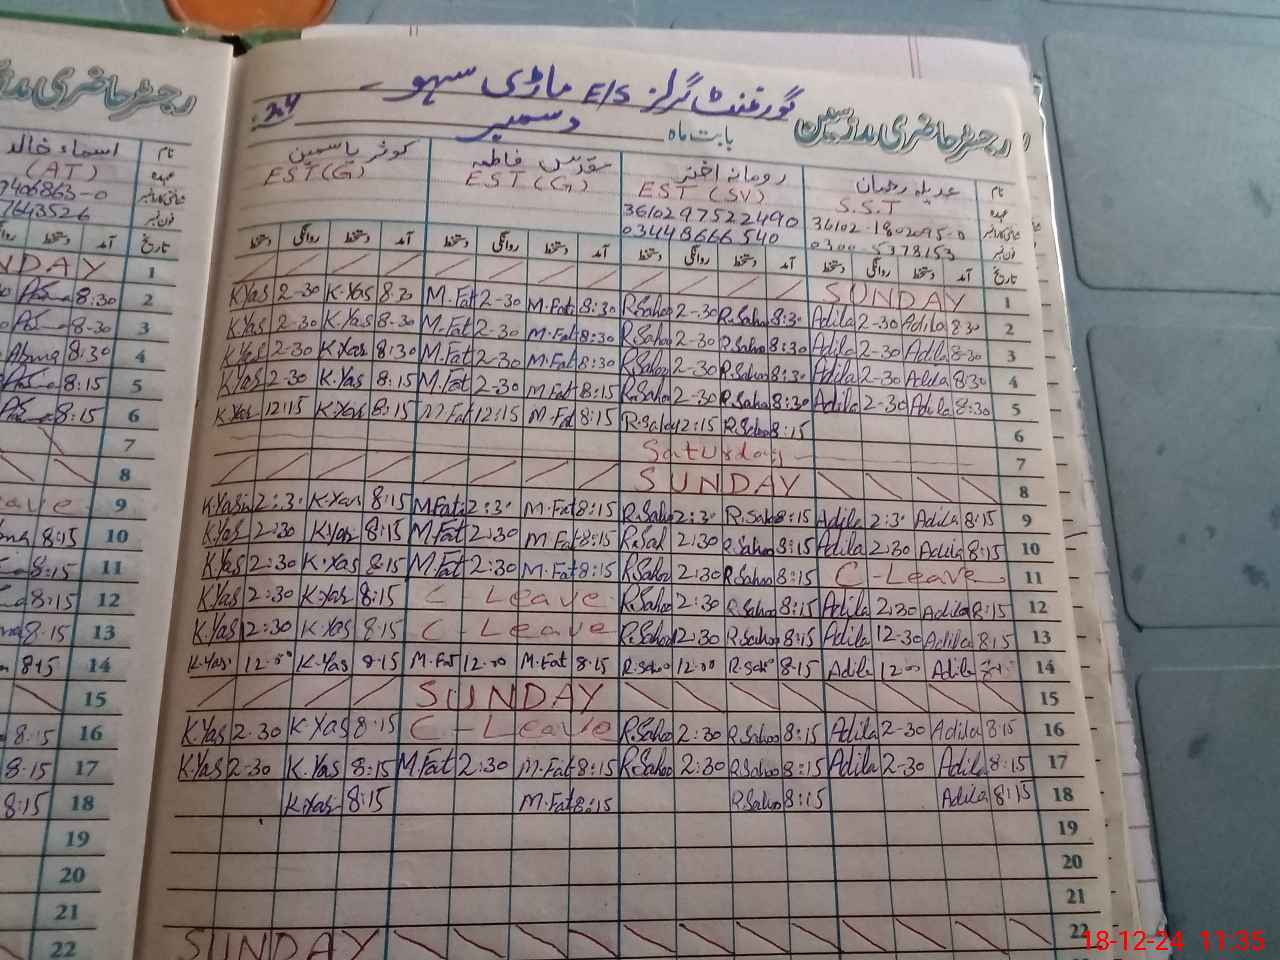 رجسٹر حاضری مدرسین
گورنمنٹ گرلز E/S ماڑی سہو
بابت ماہ دسمبر 24
نام عدیلہ رمضان رومانہ اختر مقدس فاطمہ کوثر یاسمین
عہدہ S.S.T EST (SV) EST (G) EST (G)
36102-1802095-0 3610297522490
0300-5378153 03448666540
تاریخ آمد دستخط روانگی دستخط آمد دستخط روانگی دستخط آمد دستخط روانگی دستخط آمد دستخط روانگی دستخط
SUNDAY 1
K.Yas 2-30 K.Yas 8:30 M.Fat 2-30 M.Fat 8:30 R.Saho 2-30 R.Saho 8:30 Adila 2-30 Adila 8:30 2
K.Yas 2-30 K.Yas 8-30 M.Fat 2-30 M.Fat 8:30 R.Saho 2-30 R.Saho 8:30 Adila 2-30 Adila 8-30 3
K.Yas 2-30 K.Yas 8:30 M.Fat 2-30 M.Fat 8:30 R.Saho 2-30 R.Saho 8:30 Adila 2-30 Adila 8:30 4
K.Yas 2-30 K.Yas 8:15 M.Fat 2-30 M.Fat 8:15 R.Saho 2-30 R.Saho 8:30 Adila 2-30 Adila 8:30 5
K.Yas 12:15 K.Yas 8:15 M.Fat 12:15 M.Fat 8:15 R.Saho 12:15 R.Saho 8:15 6
Saturday 7
SUNDAY 8
K.Yasi 2:30 K.Yas 8:15 M.Fat 2:30 M.Fat 8:15 R.Saho 2:30 R.Saho 8:15 Adila 2:30 Adila 8:15 9
K.Yas 2:30 K.Yas 8:15 M.Fat 2:30 M.Fat 8:15 R.Sal 2:30 R.Saho 8:15 Adila 2:30 Adila 8:15 10
K.Yas 2:30 K.Yas 8:15 M.Fat 2:30 M.Fat 8:15 R.Saho 2:30 R.Saho 8:15 C-Leave 11
K.Yas 2:30 K.Yas 8:15 C-Leave R.Saho 2:30 R.Saho 8:15 Adila 2:30 Adila 8:15 12
K.Yas 12:30 K.Yas 8:15 C-Leave R.Saho 12:30 R.Saho 8:15 Adila 12-30 Adila 8:15 13
K.Yas 12:00 K.Yas 8:15 M.Fat 12:00 M.Fat 8:15 R.Saho 12:00 R.Saho 8:15 Adila 12:00 Adila 14
SUNDAY 15
K.Yas 2-30 K.Yas 8:15 C-Leave R.Saho 2:30 R.Saho 8:15 Adila 2-30 Adila 8:15 16
K.Yas 2-30 K.Yas 8:15 M.Fat 2:30 M.Fat 8:15 R.Saho 2:30 R.Saho 8:15 Adila 2-30 Adila 8:15 17
K.Yas 8:15 M.Fat 8:15 R.Saho 8:15 Adila 8:15 18
19
20
21
SUNDAY 22
رجسٹر حاضری
نام اسماء خالد
(AT)
406863-0
7643526
تاریخ آمد دستخط
NDAY 1
8:30 2
8-30 3
Asma 8:30 4
8:15 5
8:15 6
7
8
ave 9
8:15 10
8:15 11
8:15 12
8:15 13
8:15 14
15
8:15 16
8:15 17
8:15 18
19
20
21
22
18-12-24 11:35